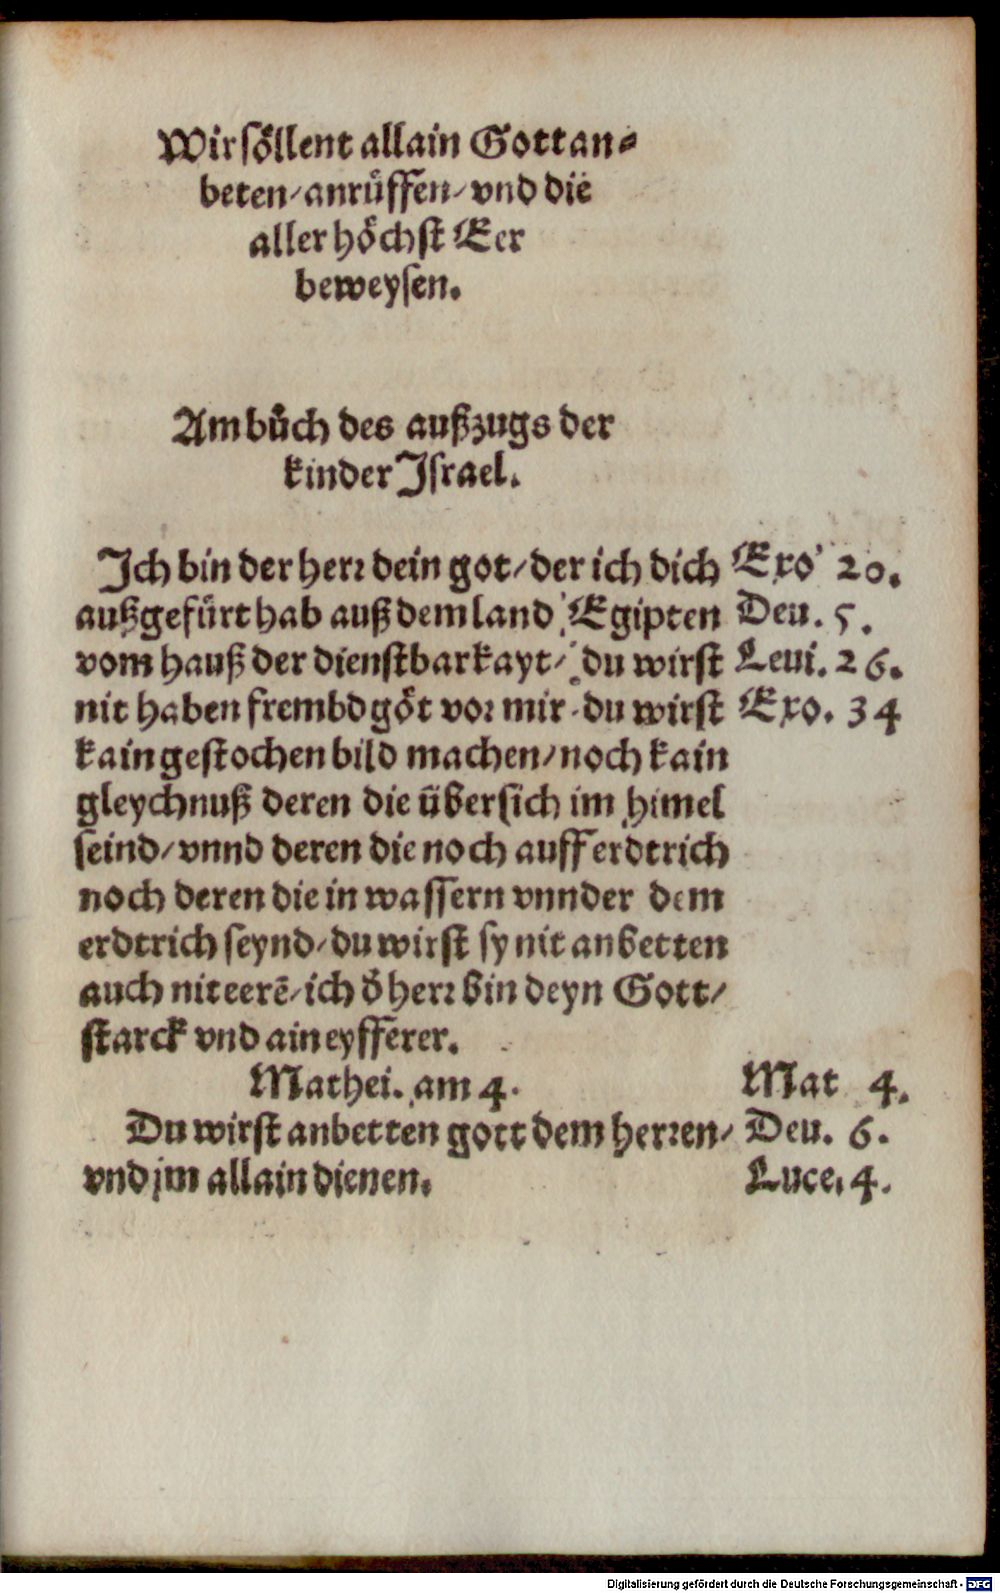 Wir söllent allain Gott an⸗
beten/ anrůffen/ vnd die
aller höchst Eer
beweysen.
Am bůch des außzugs der
kinder Israel.
Ich bin der herr dein got/ der ich dich Exo 20.
außgefürt hab auß dem land Egipten Deu. 5.
vom hauß der dienstbarkayt/ du wirst Leui. 26.
nit haben frembd göt vor mir/ du wirst Exo. 34
kain gestochen bild machen/ noch kain
gleychnuß deren die übersich im himel
seind/ vnnd deren die noch auff erdtrich
noch deren die in wassern vnnder dem
erdtrich seynd/ du wirst sy nit anbetten
auch nit eerē/ ich ð herr bin deyn Gott/
starck vnd ain eyfferer.
Mathei. am 4. Mat 4.
Du wirst anbetten gott dem herren/ Deu. 6.
vnd jm allain dienen. Luce. 4.
Digitalisierung gefördert durch die Deutsche Forschungsgemeinschaft - DFG